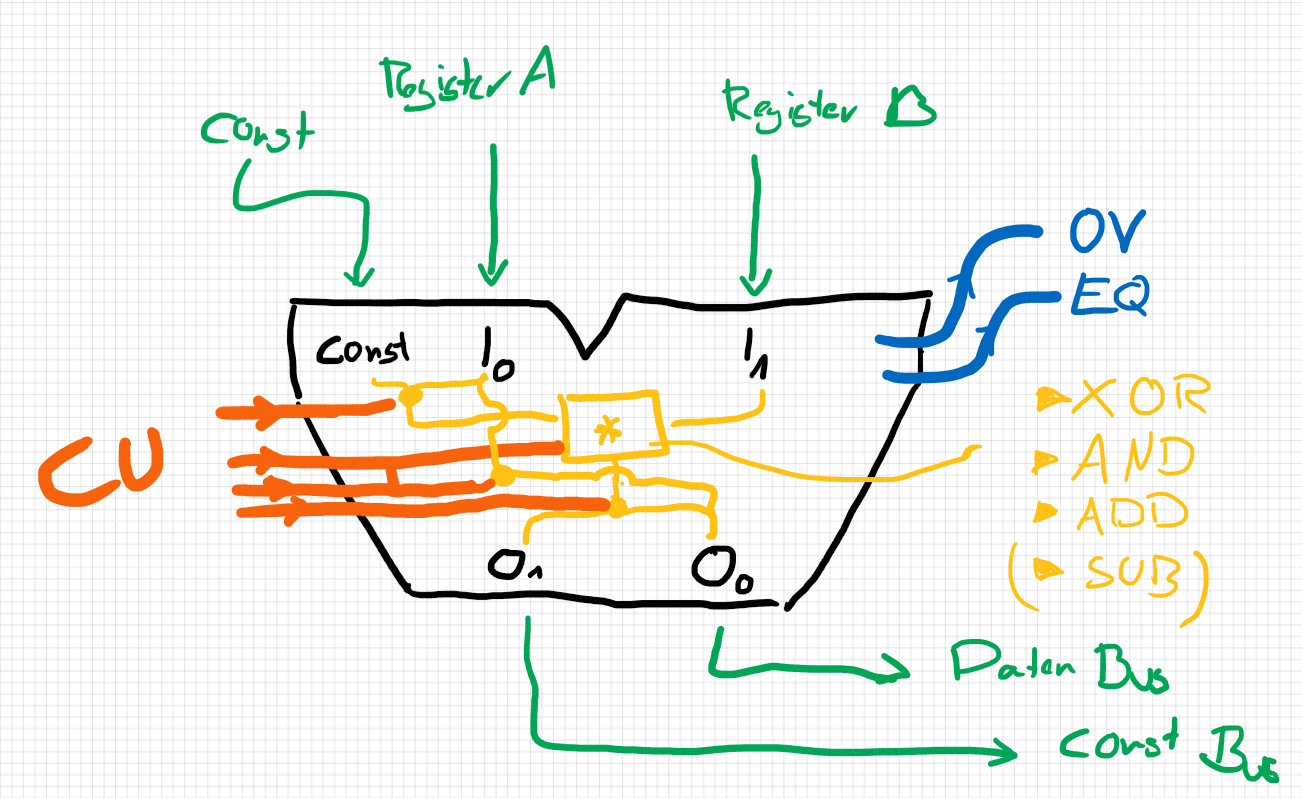 Register A
Register B
Const
OV
EQ
Const
I0
I1
CU
*
XOR
AND
ADD
(SUB)
O1
O0
Daten Bus
Const Bus